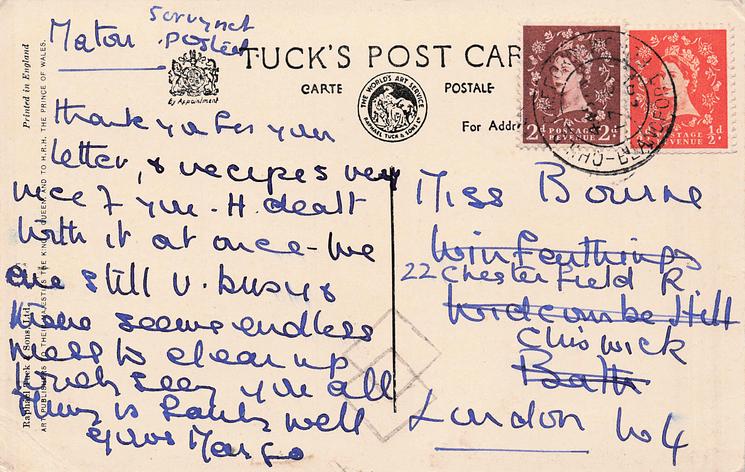 Sorry not
posted
Maton
TUCK'S POST CAR
CARTE POSTALE
For Addre
By Appointment
THE WORLD'S ART SERVICE
RAPHAEL TUCK & SONS LTD
Printed in England
Raphael Tuck & Sons, Ltd.
ART PUBLISHERS TO THEIR MAJESTIES THE KING & QUEEN AND TO H.R.H. THE PRINCE OF WALES.
2d POSTAGE REVENUE 2d
POSTAGE REVENUE ½d
BLANDFORD
Thank you for your
letter, & recipes very
nice of you. H. dealt
with it at once - we
are still v. busy &
there seems endless
mess to clear up
seeing you all
is fairly well
yours Margo
Miss Bourne
Win Fenthings
22 Chesterfield R
Widcombe Hill
Chiswick
Bath
London W4